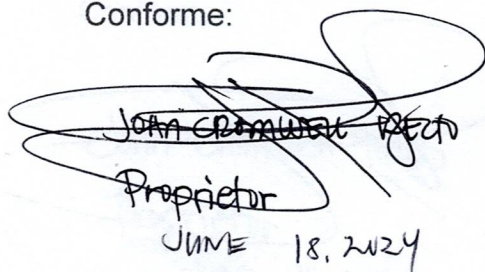 Conforme:
JOHN CROMWELL
Proprietor
JUNE 18, 2024